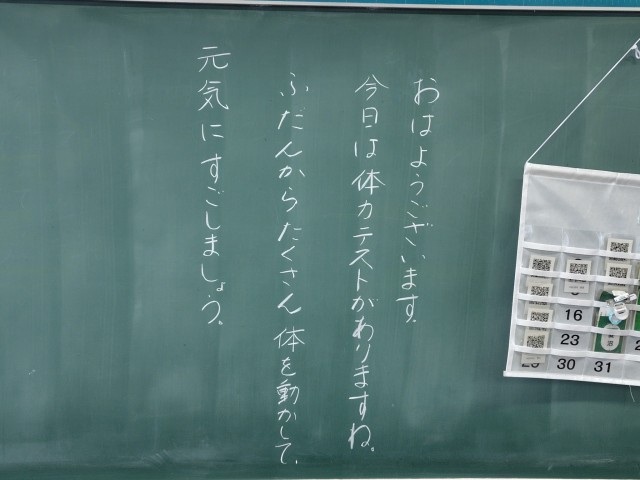 おはようございます。
今日は体力テストがありますね。
ふだんからたくさん体を動かして、
元気にすごしましょう。
16
23
30
31